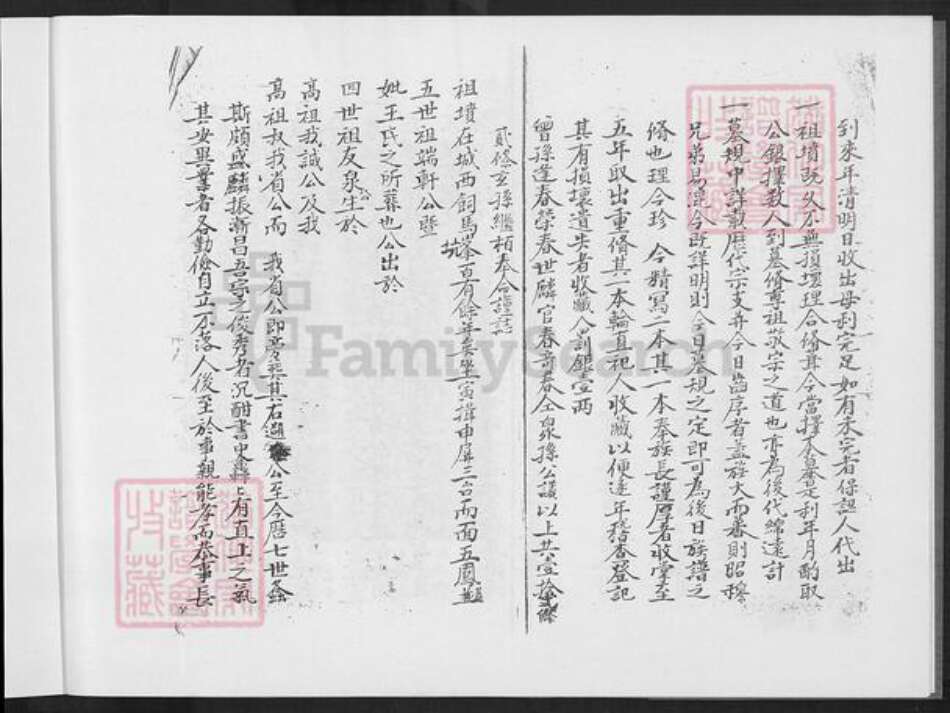 到來年清明日收出母利完足如有未完者保認人代出
一祖墳既久不無損壞理合脩葺今當擇本墓是利年月酌取
公銀擇數人到墓脩尊祖敬宗之道也亦為後代綿遠計
一墓規中詳載歷代宗支并今日齒序者蓋族大而蕃則昭穆
兄弟易混今既詳明則今日墓規之定即可為後日族譜之
脩也理今珍 今精寫二本其一本奉族長謹厚者收掌至
五年取出重脩其一本輪直祀人收藏以便逐年稽查登記
其有損壞遺失者收藏人罰銀壹兩
曾孫逢春榮春世麟官春奇春仝眾孫公議以上共壹拾條
貳修玄孫繼栢奉今謹誌
祖墳在城西飼馬坑峯百有餘年矣坐寅揖申屏三台而面五鳳
五世祖端軒公暨
妣王氏之所葬也公出於
四世祖友泉公生於
高祖我誠公及我
高祖叔我省公而 我省公即 其右 公至今曆七世螽
斯頗盛麟振漸昌吾宗之俊秀者沉酣書史 上有直上之氣
其安畢業者各勤儉自立不落人後至於事親能孝而恭事長
FamilySearch